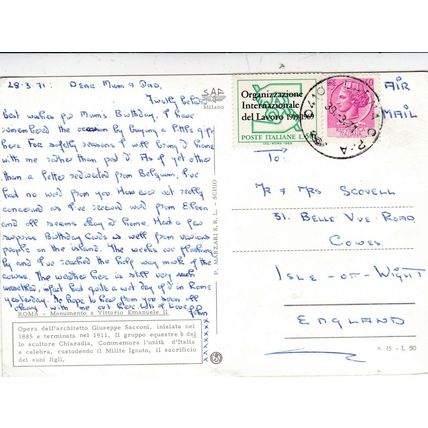 28-3-71 DEAR MUM & DAD,
Firstly belated
best wishes for Mum's Birthday, I have
remembered the occasion by buying a little gift
here. For safety reasons I will bring it home
with me rather than post it. As of yet other
than a letter redirected from Belgium, I've
had no word from you. However not really
concerned as I've received word from Eileen
and all seems okay at home. Had a few
surprise Birthday Cards as well from various
people on the island. The weeks are flashing
by and I've reached the half way mark of the
course. The weather here is still very much
unsettled, what had quite a wet day of it in Rome
yesterday. So hope to hear from you soon all
okay with me
ROMA - Monumento a Vittorio Emanuele II
Opera dell'architetto Giuseppe Sacconi, iniziata nel
1885 e terminata nel 1911. Il gruppo equestre è del
lo scultore Chiaradia. Commemora l'unità d'Italia
e celebra, custodendo il Milite Ignoto, il sacrificio
dei suoi figli.
SAF
Milano
P. MARZARI S.R.L. - SCHIO
Organizzazione
Internazionale
del Lavoro 1919/1969
POSTE ITALIANE L.
AIR
MAIL
TO:
MR & MRS SCOVELL
31. BELLE VUE ROAD
COWES
ISLE-OF-WIGHT
ENGLAND
n. 15 - L 50